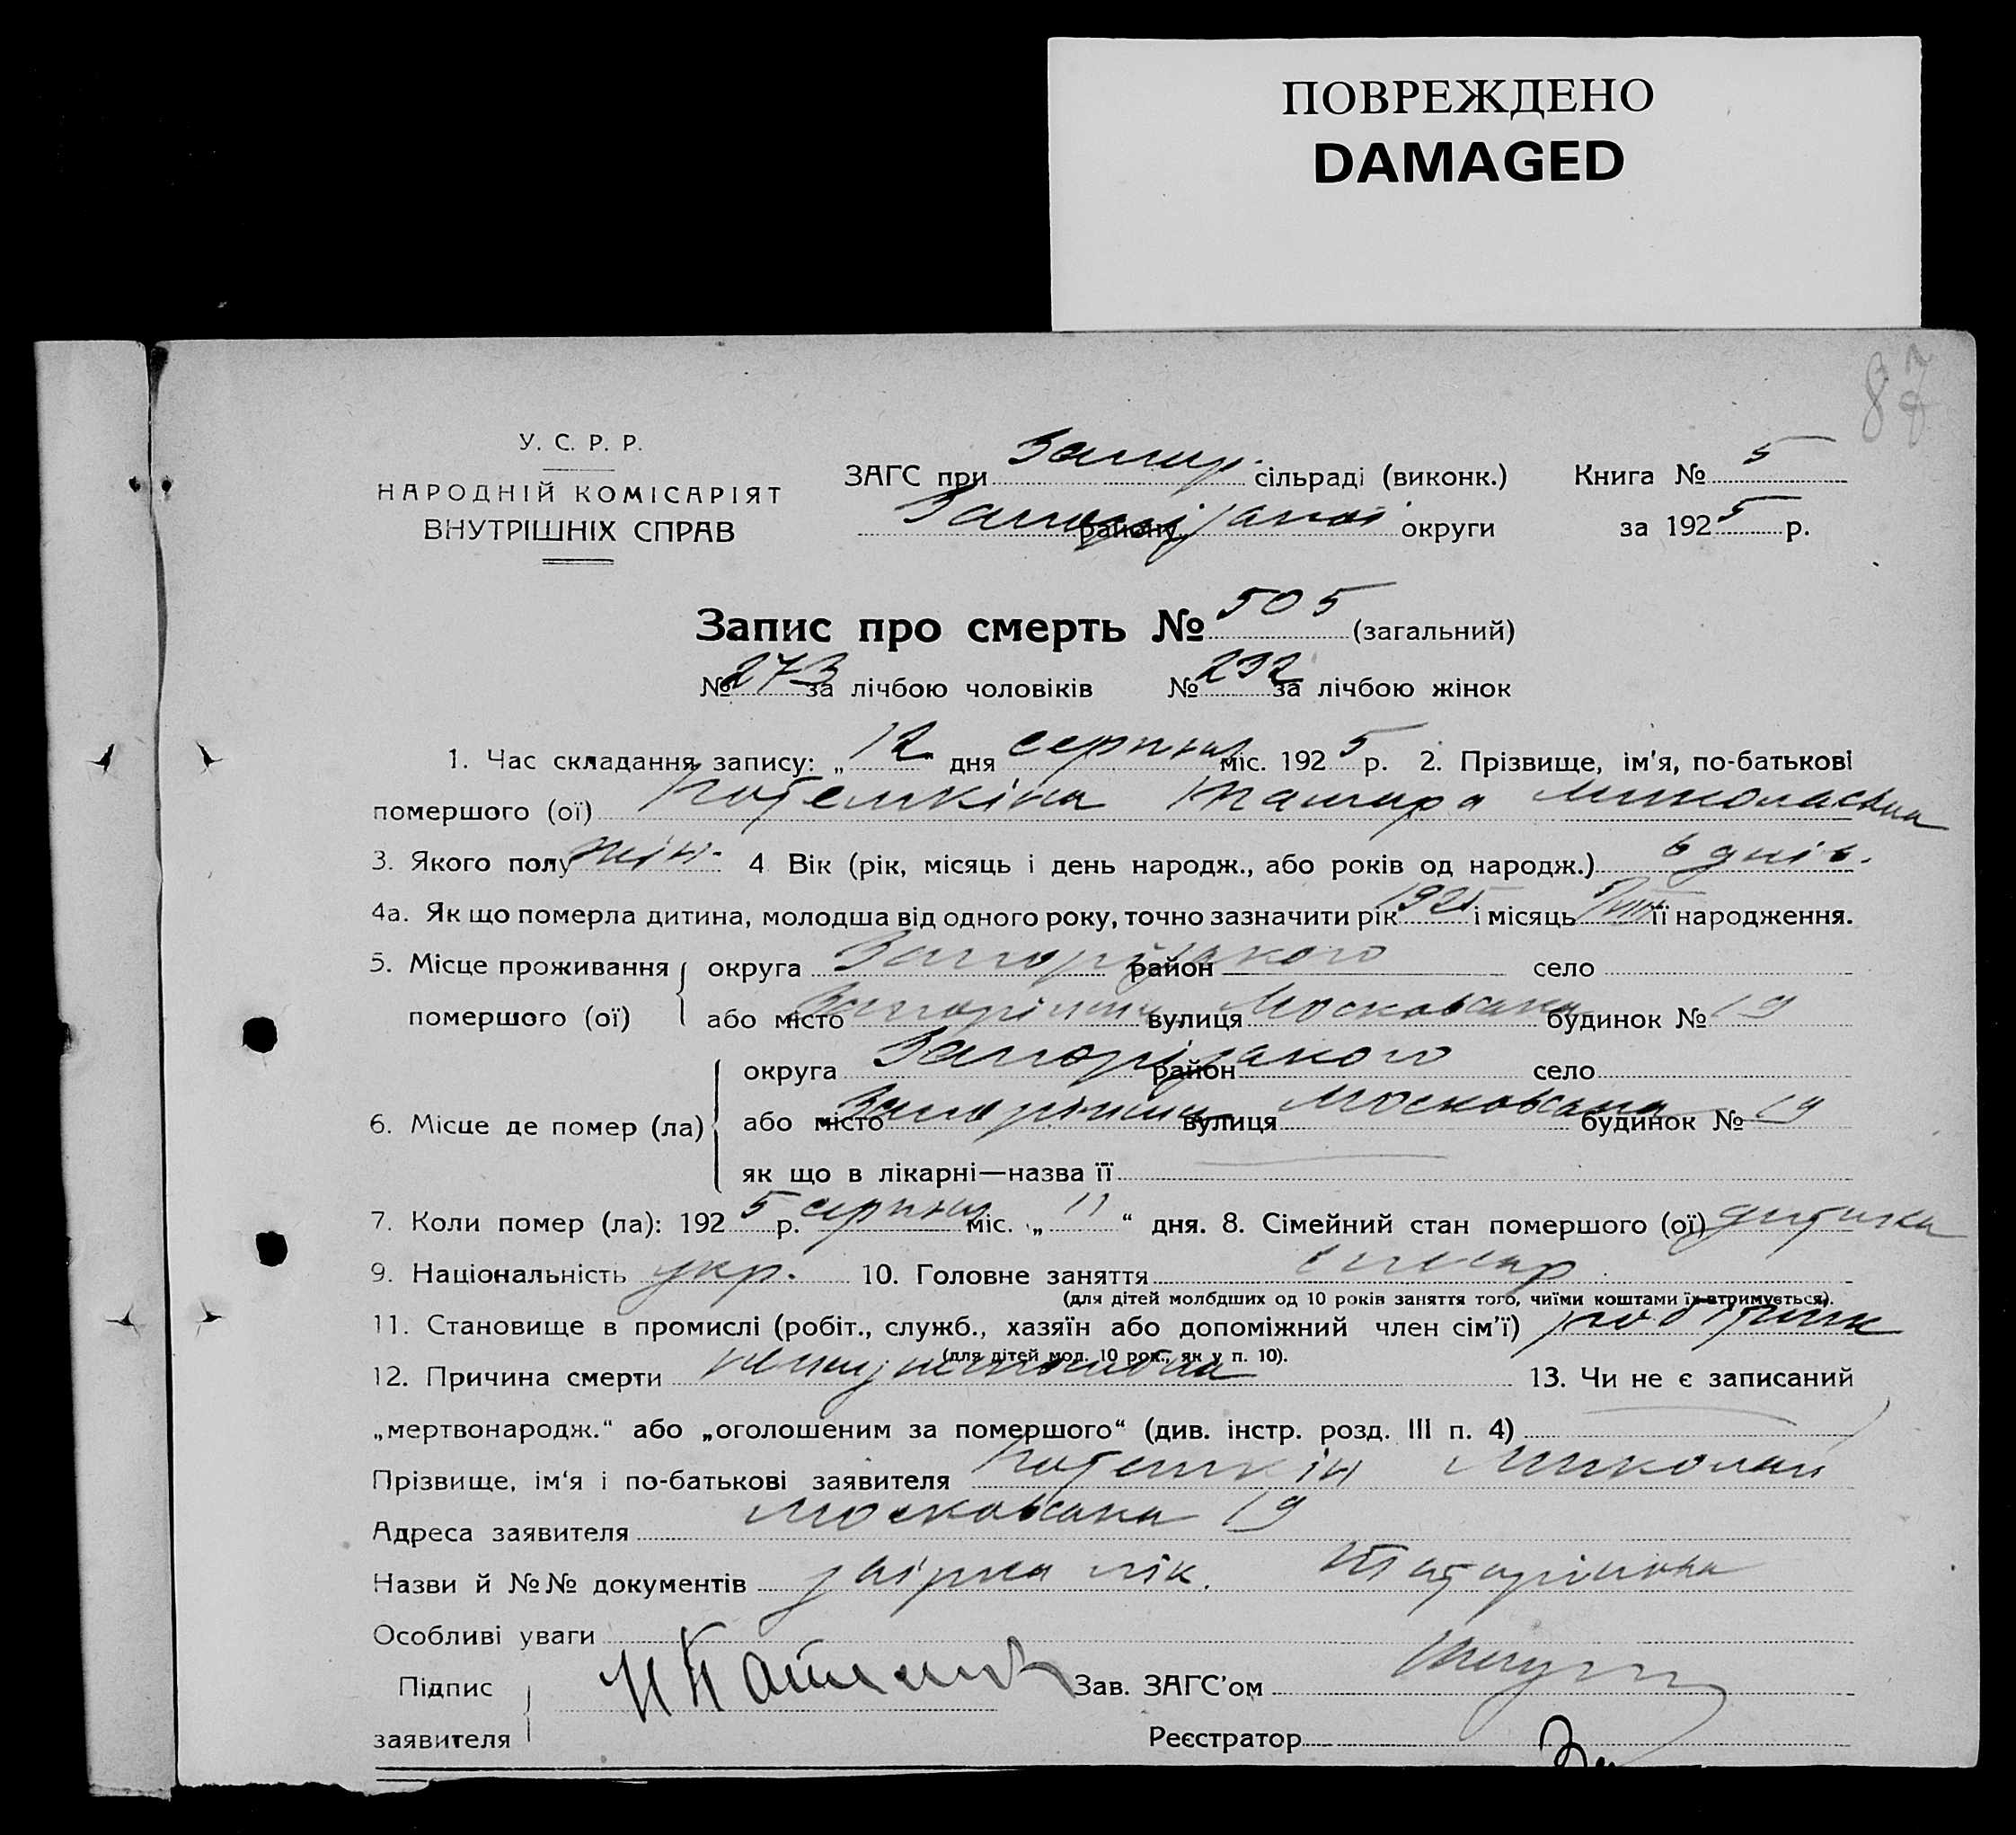 ПОВРЕЖДЕНО
DAMAGED
87
У. С. Р. Р.
НАРОДНІЙ КОМІСАРІЯТ
ВНУТРІШНІХ СПРАВ
ЗАГС при Запор. сільраді (виконк.) Книга № 5
району Запорізької округи за 1925 р.
Запис про смерть № 505 (загальний)
№ 273 за лічбою чоловіків № 232 за лічбою жінок
1. Час складання запису: „12" дня серпня міс. 1925 р. 2. Прізвище, ім'я, по-батькові
помершого (ої) Потемкіна Тамара Миколаєвна
3. Якого полу жін. 4 Вік (рік, місяць і день народж., або років од народж.) 6 днів.
4а. Як що померла дитина, молодша від одного року, точно зазначити рік 1925 і місяць 5/VIII її народження.
5. Місце проживання помершого (ої) округа Запорізького район село
або місто Запоріжжя вулиця Московська будинок № 19
6. Місце де помер (ла) округа Запорізького район село
або місто Запоріжжя вулиця Московська будинок № 19
як що в лікарні—назва її
7. Коли помер (ла): 1925 р. серпня міс. „11" дня. 8. Сімейний стан помершого (ої) дитина
9. Національність укр. 10. Головне заняття
(для дітей молодших од 10 років заняття того, чиїми коштами їх втримується).
11. Становище в промислі (робіт., служб., хазяїн або допоміжний член сім'ї) робітник
(для дітей мол. 10 рок., як у п. 10).
12. Причина смерти 13. Чи не є записаний
„мертвонародж." або „оголошеним за помершого" (див. інстр. розд. III п. 4)
Прізвище, ім'я і по-батькові заявителя Потемкін Миколай
Адреса заявителя Московська 19
Назви й №№ документів довірка лік.
Особливі уваги
Підпис заявителя Зав. ЗАГС'ом
Реєстратор